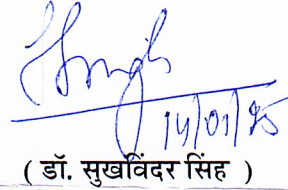 14/01/25
( डॉ. सुखविंदर सिंह )